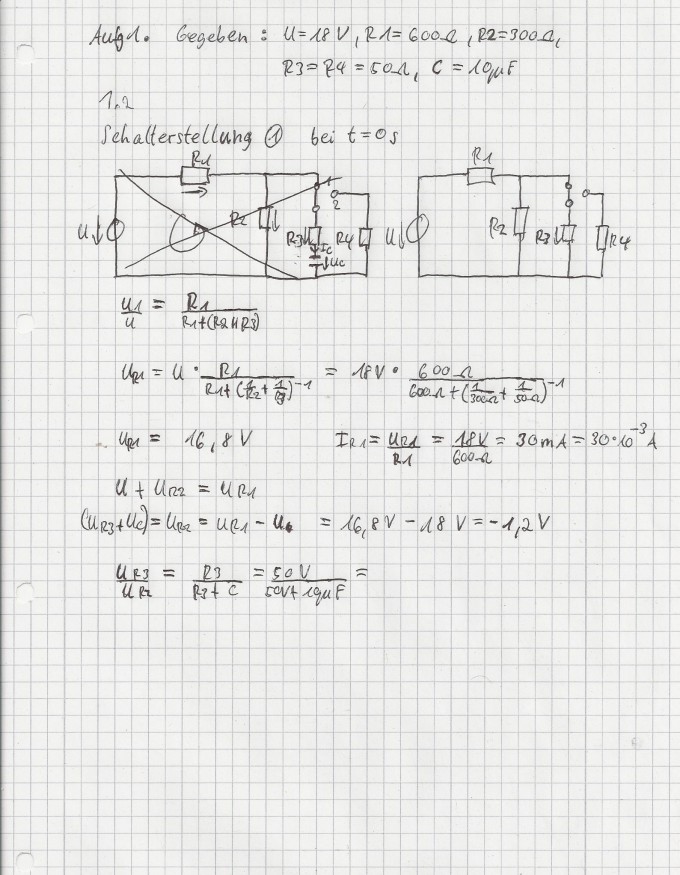 Aufg1. Gegeben: U=18V, R1=600Ω, R2=300Ω,
R3=R4=50Ω, C=10µF
1.2
Schalterstellung ① bei t=0s
R1
U
R2
R3
Ic
Uc
1
2
R4
R1
U
R2
R3
R4
U1/U = R1/(R1+(R2||R3))
UR1 = U · R1/(R1+(1/R2+1/R3)^-1) = 18V · 600Ω/(600Ω+(1/300Ω+1/50Ω)^-1)
UR1 = 16,8V IR1 = UR1/R1 = 18V/600Ω = 30mA = 30·10^-3 A
U + UR2 = UR1
(UR3+Uc) = UR2 = UR1 - U = 16,8V - 18V = -1,2V
UR3/UR2 = R3/(R3+C) = 50V/(50V+10µF) =